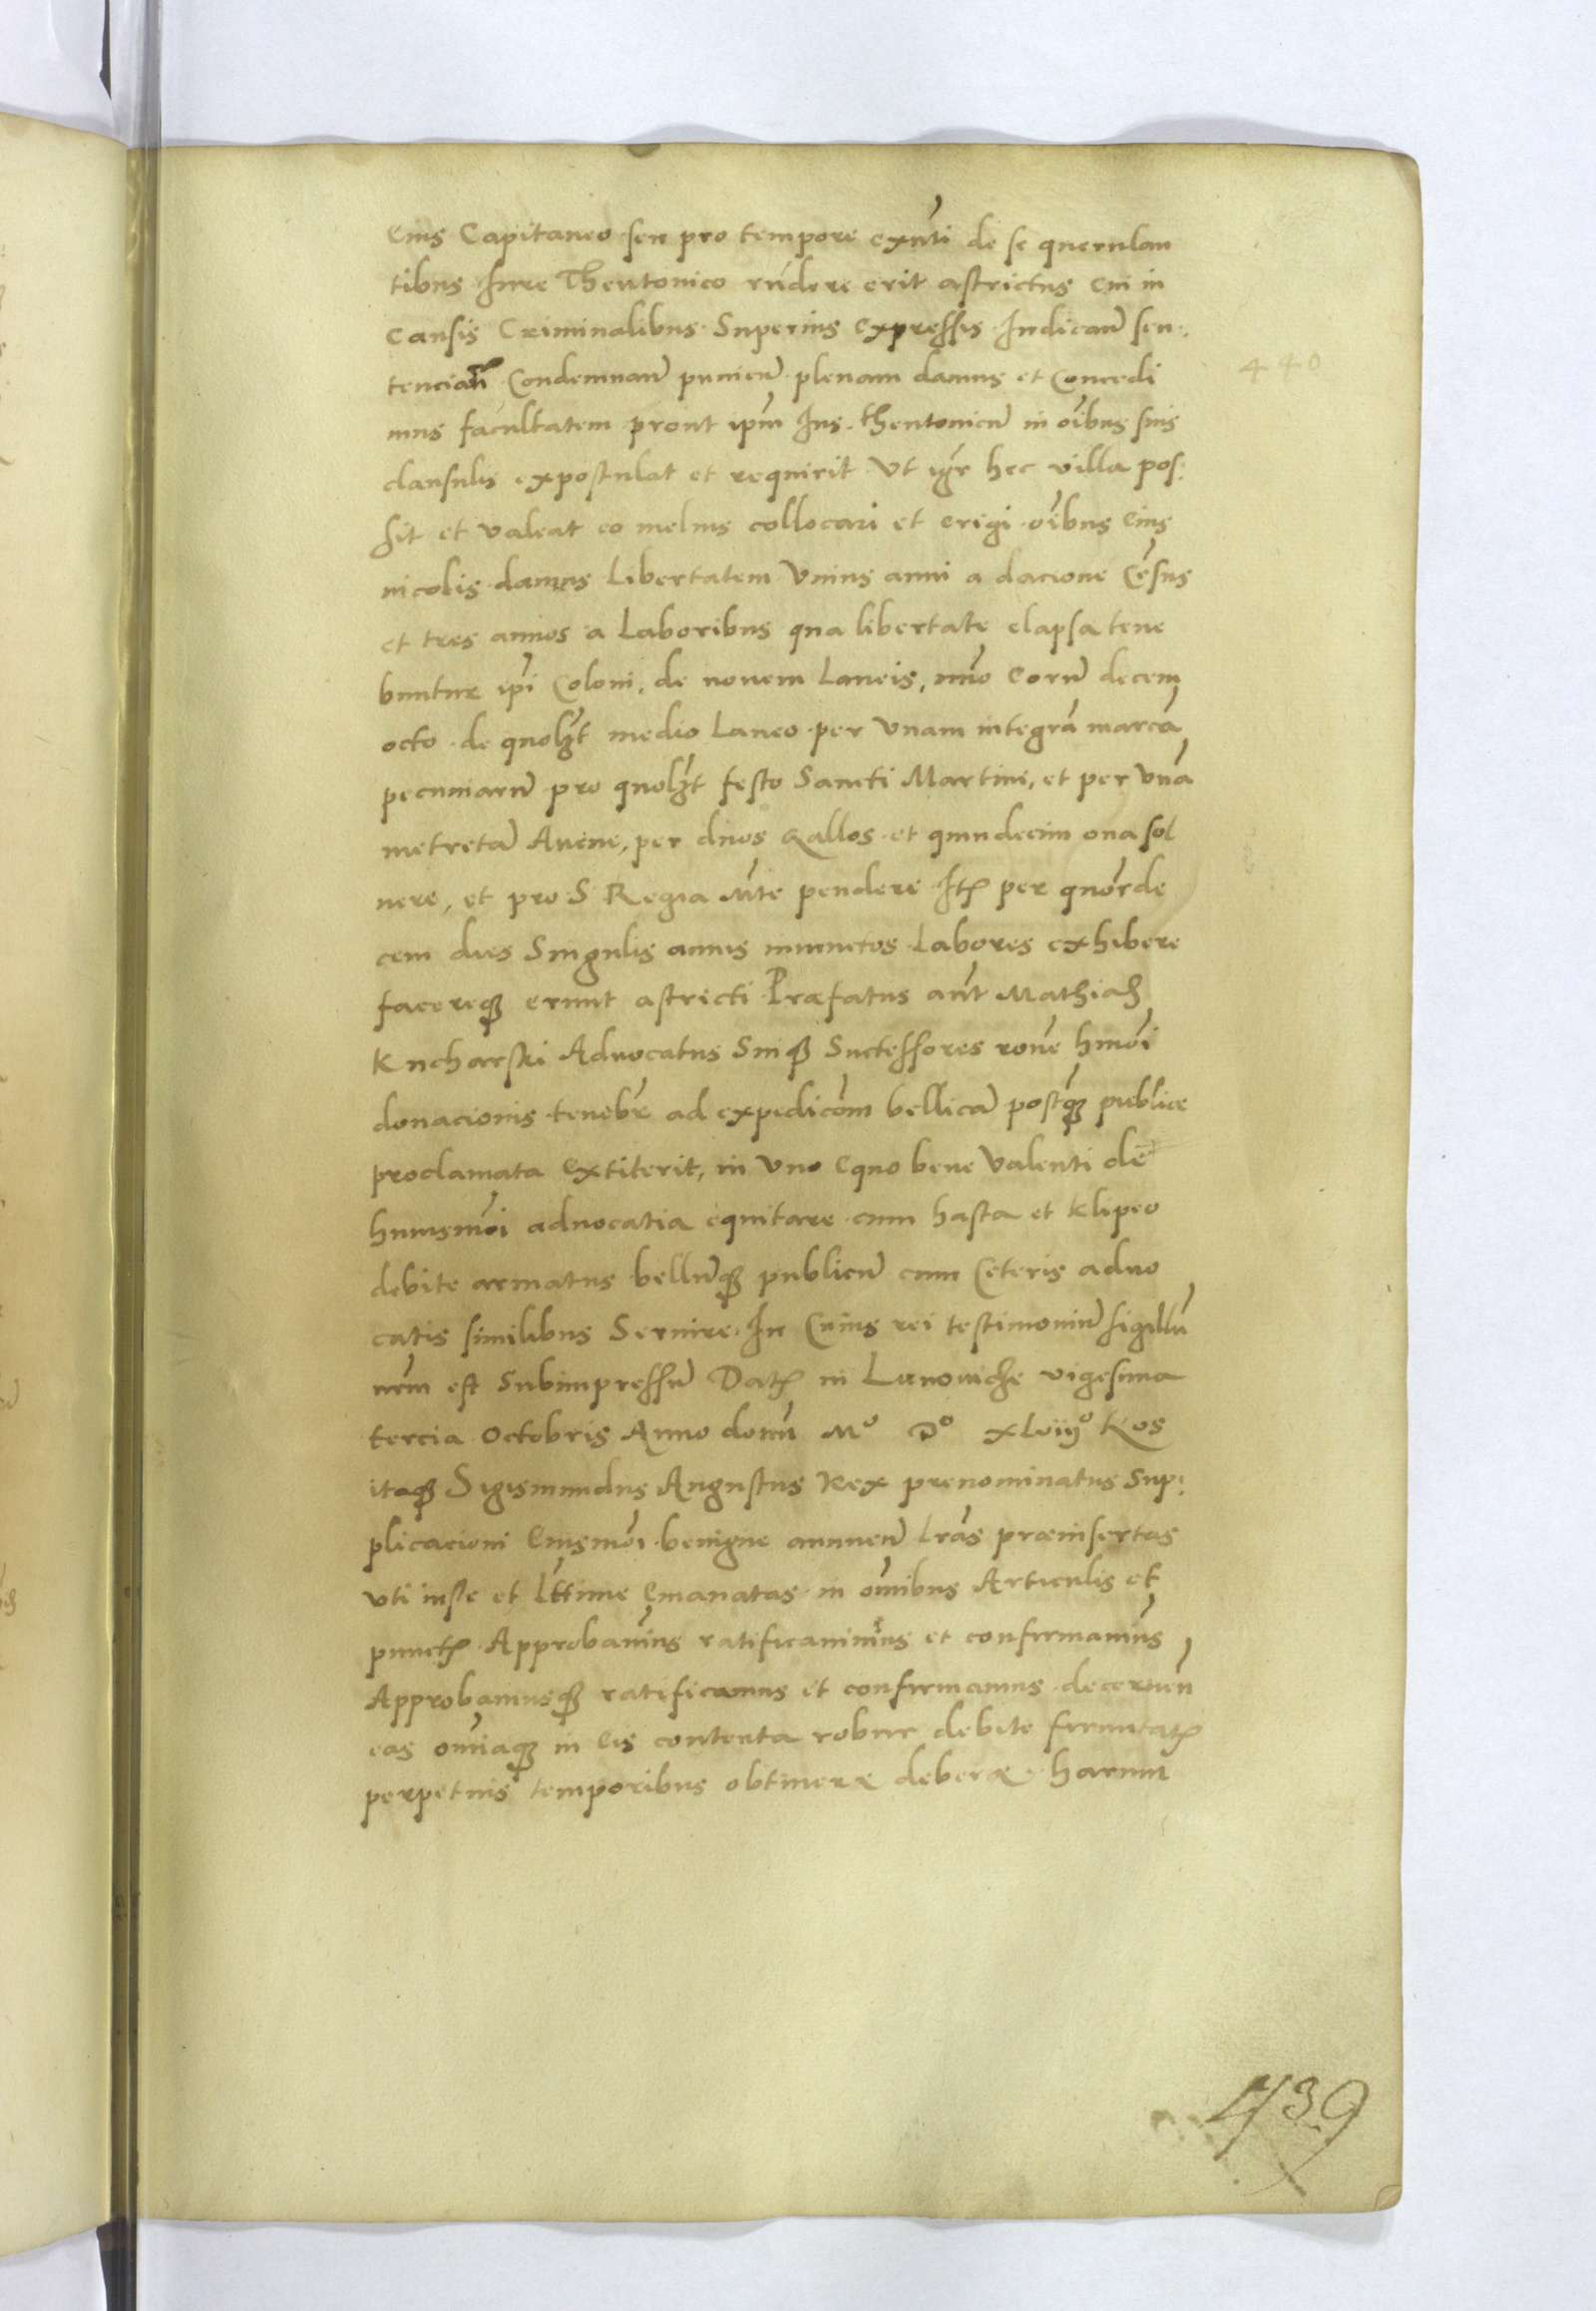 Eius Capitaneo seu pro tempore exñti de se querulan
tibus Iure Theutonico rñdere erit astrictus Cui in
Causis Criminalibus Superius expressis Iudicanď sen:
tenciañ Condemnanď puniend̃ plenam damus et Concedi
mus facultatem prout ipm̃ Ius theutonicũ in oĩbus suis
clausulis expostulat et requirit Vt igr̃ hec villa pos:
sit et valeat eo melius collocari et erigi oĩbus Eius
incolis damus Libertatem Vnius anni a dacione Cẽsus
et tres annos a Laboribus qua libertate elapsa tene
buntur ipĩ Coloni, de nouem Laneis, nũo Eorũ decem
octo de quolʒt medio Laneo per Vnam integrã marcã
pecuniarũ pro quolʒt festo Sancti Martini, et per Vnã
metretã Auene, per duos Gallos et quindecim oua sol
uere, et pro S Regia Mte pendere Itꝫ per quõrde
cem dies Singulis annis iniunctos Labores exhibere
facereqꝫ erunt astricti Præfatus aut̃ Mathias
Kucharski Aduocatus Suiqꝫ Successores rone hmõi
donacionis tenebr̃ ad expedicõm bellicã postqꝫ publice
proclamata Extiterit, in Vno Equo bene Valenti de
huiusmõi aduocatia equitare cum hasta et klipeo
debite armatus bellũqꝫ publicũ cum Ceteris aduo
catis similibus Seruire. In Cuius rei testimoniũ sigillũ
nrm̃ est Subimpressũ Datꝫ in Lanouiche vigesima
tercia Octobris Anno domĩ Mº Dº xLviijº Nos
itaqꝫ Sigismundus Augustus Rex prenominatus Sup:
plicacioni Eiusmõi benigne annuen̄ Lrãs præinsertas
vti iuste et Lttime Emanatas in omñibus Articulis et
punctꝫ Approbauim̃us ratificauim̃us et confirmauim̃us
Approbamusqꝫ ratificamus et confirmamus decernen̄
eas omñiaqꝫ in Eis contenta robur debite firmitatꝫ
perpetuis temporibus obtinere debere harum
440
439